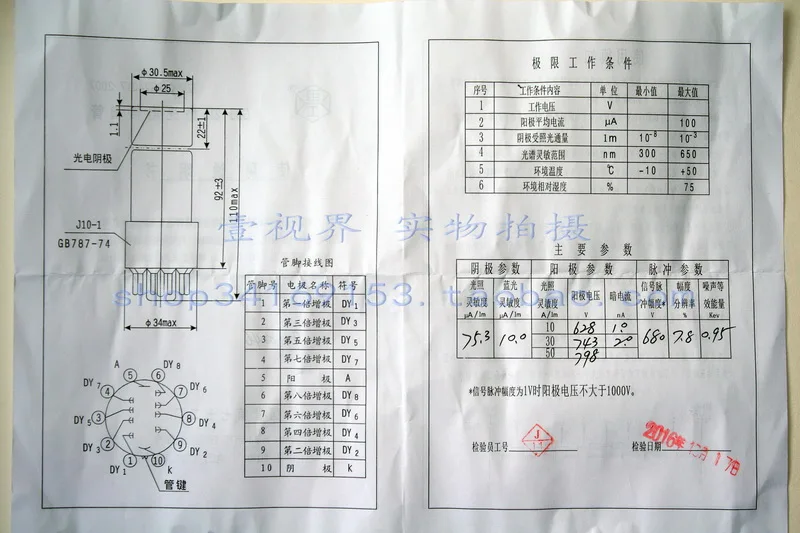 φ30.5max
φ25
1.1
22±1
92±3
110max
光电阴极
J10-1
GB787-74
φ34max
管脚接线图
管脚号 电极名称 符号
1 第一倍增极 DY1
2 第三倍增极 DY3
3 第五倍增极 DY5
4 第七倍增极 DY7
5 阳 极 A
6 第八倍增极 DY8
7 第六倍增极 DY6
8 第四倍增极 DY4
9 第二倍增极 DY2
10 阴 极 k
A DY8
5 6
DY7 4 7 DY6
DY5 3 8 DY4
DY3 2 9 DY2
DY1 1 10 K
管键
极限工作条件
序号 工作条件内容 单位 最小值 最大值
1 工作电压 V
2 阳极平均电流 μA 100
3 阴极受照光通量 lm 10⁻⁸ 10⁻³
4 光谱灵敏范围 nm 300 650
5 环境温度 ℃ -10 +50
6 环境相对湿度 % 75
壹视界 实物拍摄
主要参数
阴极参数 阳极参数 脉冲参数
光照灵敏度 μA/lm 蓝光灵敏度 μA/lm 光照灵敏度 A/lm 阳极电压 V 暗电流 nA 信号脉冲幅度* V 幅度分辨率 % 噪声等效能量 Kev
75.3 10.0 10 628 1.0 680 7.8 0.95
30 743 2.0
50 798
*信号脉冲幅度为1V时阳极电压不大于1000V。
检验员工号 J
检验日期 2016年